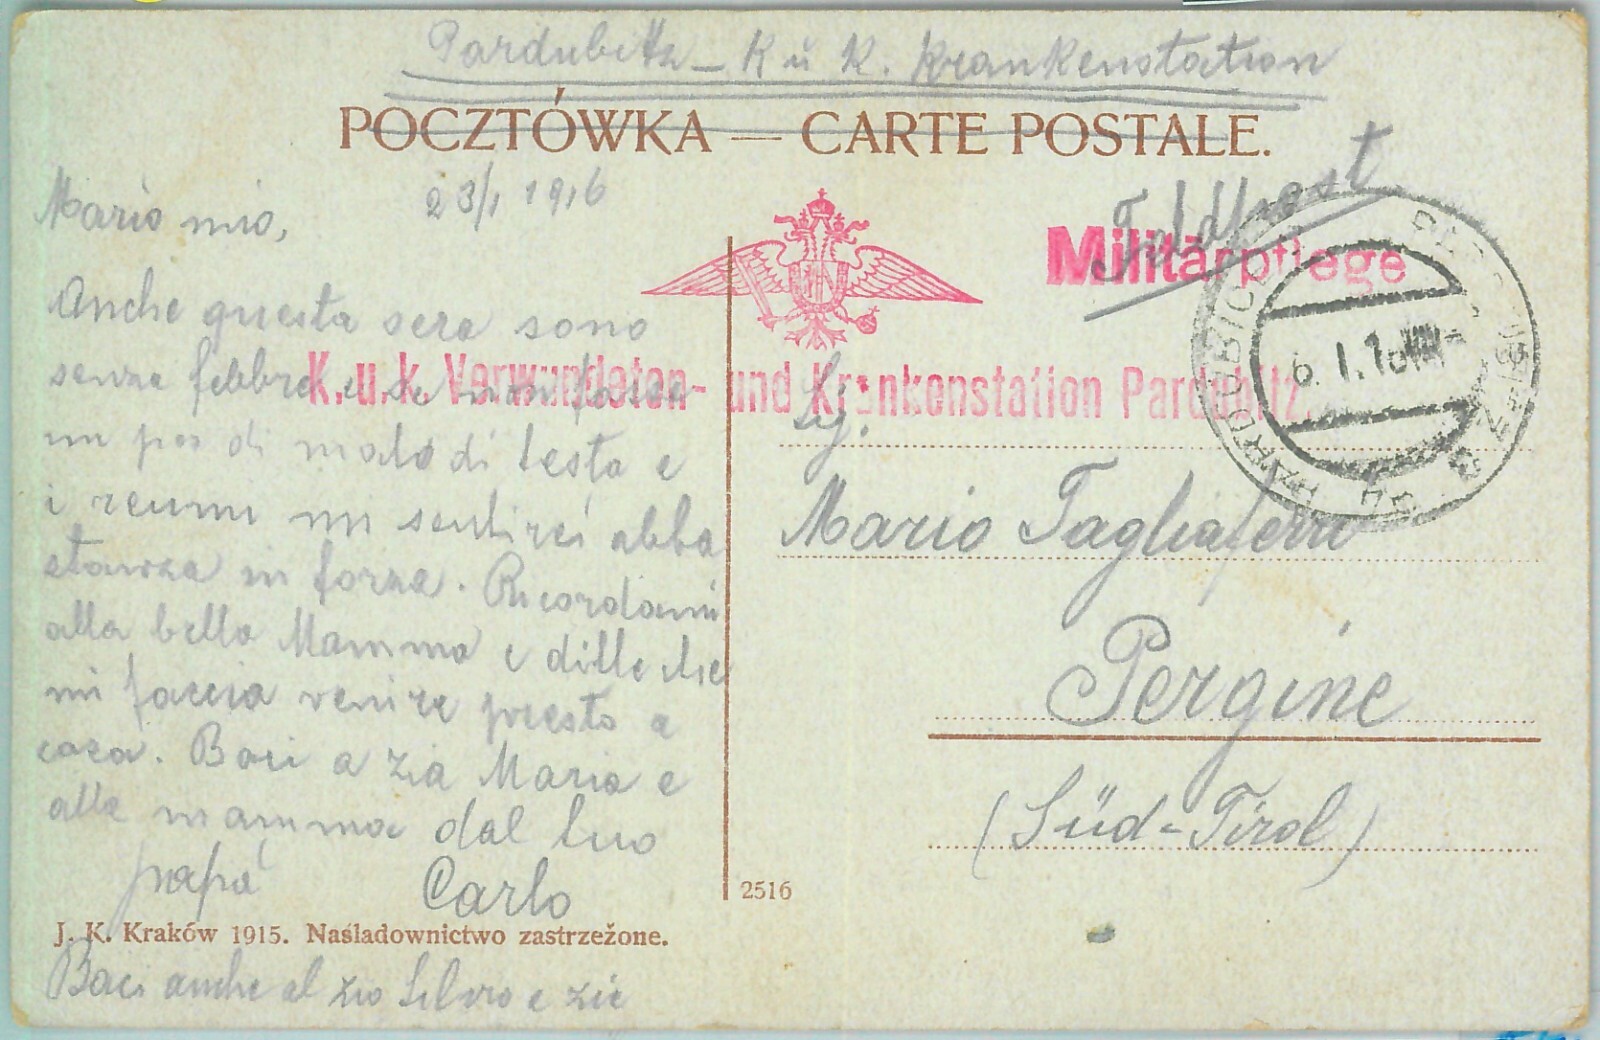 Pardubitz – K u K. Krankenstation
POCZTÓWKA — CARTE POSTALE.
23/1 1916
Mario mio,
Anche questa sera sono
senza febbre e se non fosse
un po' di malo di testa e
i reumi mi sentirei abba
stanza in forza. Ricordami
alla bella Mamma e dille che
mi faccia venire presto a
casa. Baci a zia Maria e
alla mamma dal tuo
papà Carlo
J. K. Kraków 1915. Naśladownictwo zastrzeżone.
Baci anche al zio Silvio e zie
2516
Feldpost
Militärpflege
K.u.k. Verwundeten- und Krankenstation Pardubitz.
PARDUBICE
6. I. 16
Sg.
Mario Tagliaferri
Pergine
(Süd-Tirol)